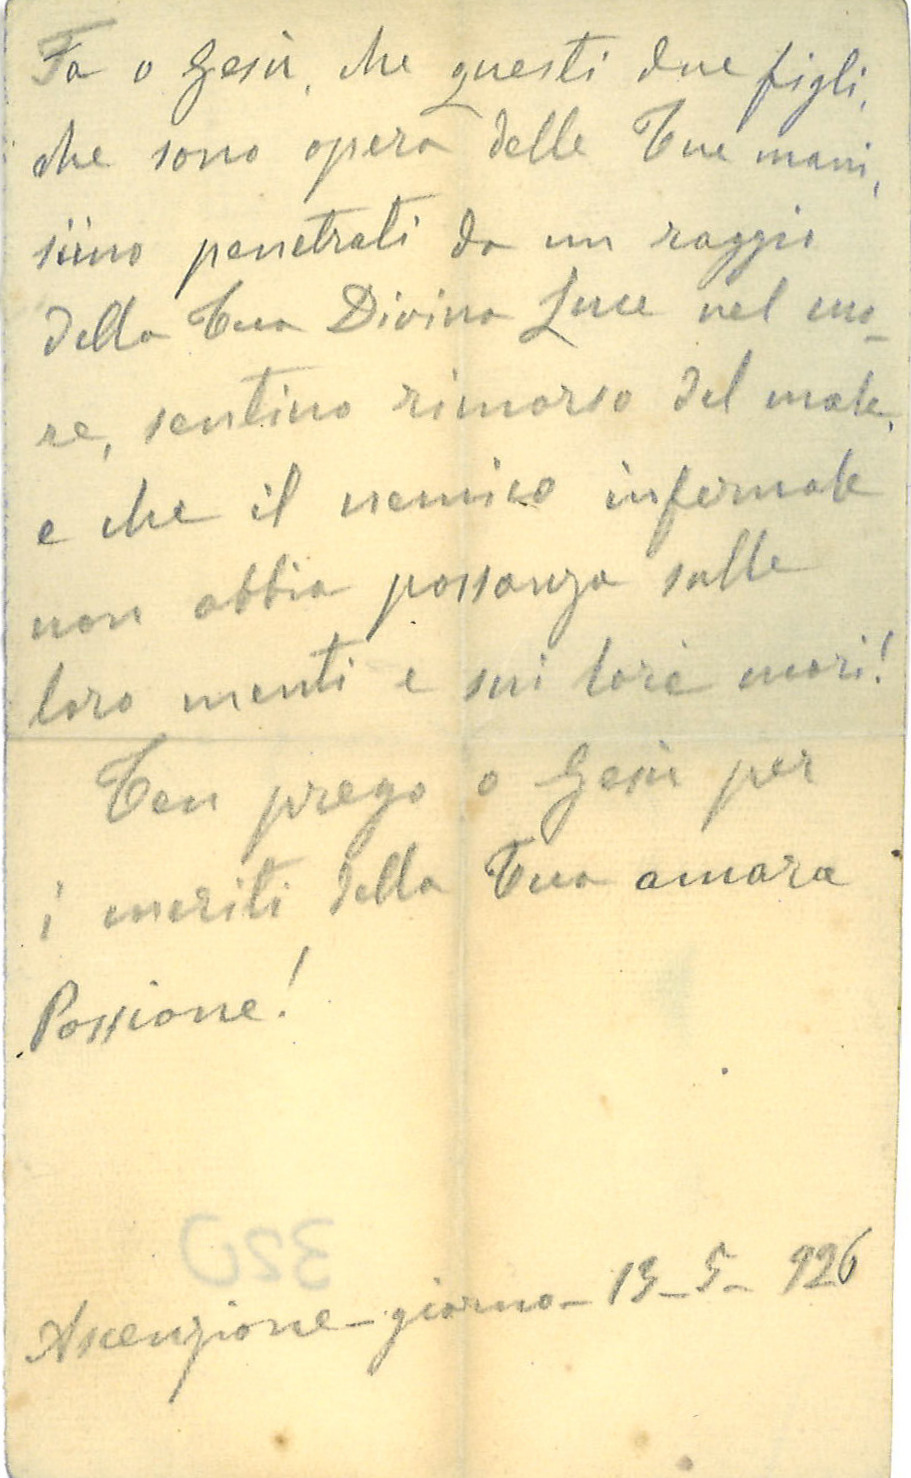 Fa o Gesù, che questi due figli,
che sono opera delle Tue mani,
siino penetrati da un raggio
della Tua Divina Luce nel cuo-
re, sentino rimorso del male,
e che il nemico infernale
non abbia possanza sulle
loro menti e sui loro cuori!
Ten prego o Gesù per
i meriti della Tua amara
Passione!
320
Ascenzione - giorno - 13 - 5 - 926